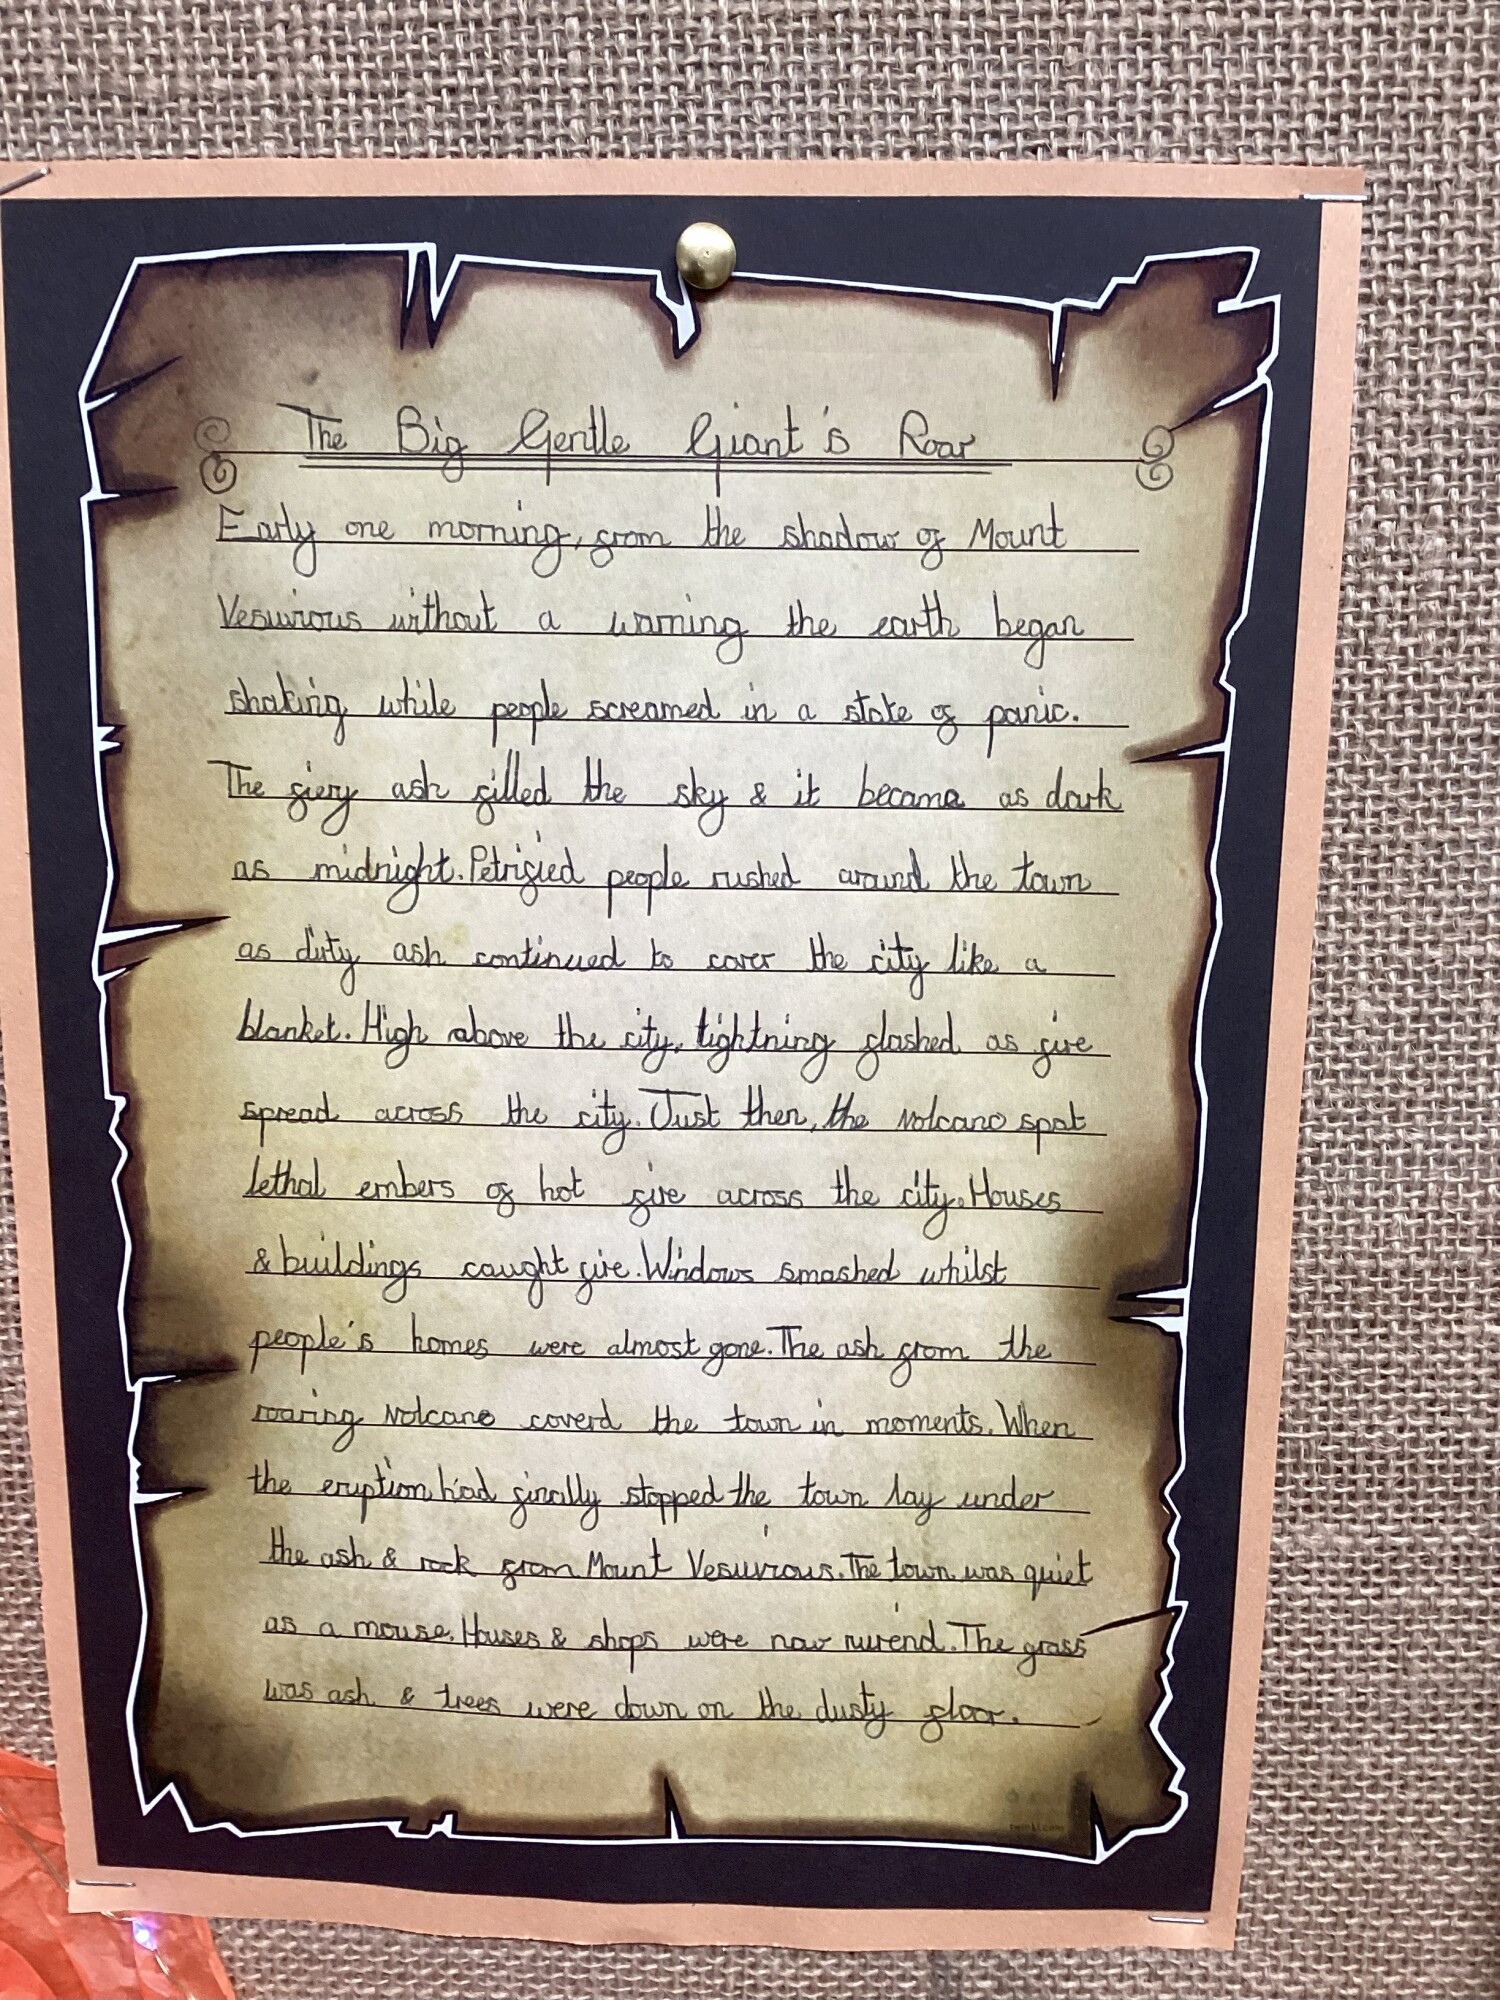 The Big Gentle Giant's Roar
Early one morning, from the shadow of Mount
Vesuvious without a warning the earth began
shaking while people screamed in a state of panic.
The fiery ash filled the sky & it became as dark
as midnight. Petrified people rushed around the town
as dirty ash continued to cover the city like a
blanket. High above the city, lightning flashed as fire
spread across the city. Just then, the volcano spat
lethal embers of hot fire across the city. Houses
& buildings caught fire. Windows smashed whilst
people's homes were almost gone. The ash from the
roaring volcano coverd the town in moments. When
the eruption had finally stopped the town lay under
the ash & rock from Mount Vesuvious. The town was quiet
as a mouse. Houses & shops were now ruiend. The grass
was ash & trees were down on the dusty floor.
twinkl.com